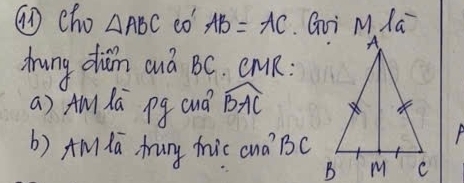 (11) Cho △ABC có AB = AC. Gọi M là
trung điểm của BC. CMR:
a) AM là pg của BAC
b) AM là trung trực của BC
A
B M C